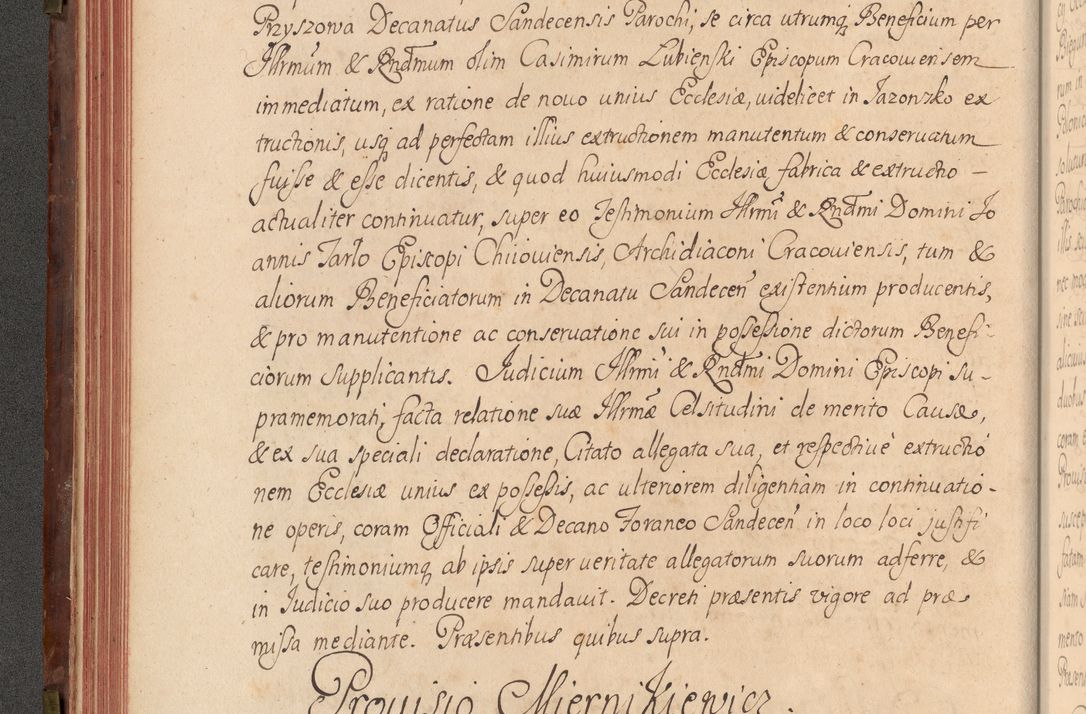 Przyszowa Decanatus Sandecensis Parochi, se circa utrumq Beneficium per
Illrmum & Rndmum olim Casimirum Lubienski Episcopum Cracouiensem
immediatum, ex ratione de nouo unius Ecclesiæ, uidelicet in Jazonzko ex
tructionis, usq ad perfectam illius extructionem manutentum & conseruatum
fuisse & esse dicentis, & quod huiusmodi Ecclesiæ fabrica & extructio –
actualiter continuatur, super eo Testimonium Illrmi & Rndmi Domini Jo
annis Tarło Episcopi Chiiouiensis, Archidiaconi Cracouiensis, tum &
aliorum Beneficiatorum in Decanatu Sandecen existentium producentis,
& pro manutentione ac conseruatione sui in possessione dictorum Benefi-
ciorum supplicantis. Judicium Illrmi & Rndmi Domini Episcopi su-
pramemorati, facta relatione suæ Illrmæ Celsitudini de merito Causæ,
& ex sua speciali declaratione, Citato allegata sua, et respectiue extructio
nem Ecclesiæ unius ex possessis, ac ulteriorem diligentiam in continuatio-
ne operis, coram Officiali & Decano Foraneo Sandecen in loco loci justifi
care, testimoniumq ab ipsis super ueritate allegatorum suorum adferre, &
in Judicio suo producere mandauit. Decreti præsentis vigore ad præ
missa mediante. Præsentibus quibus supra.
Prouisio Miernikiewicz.